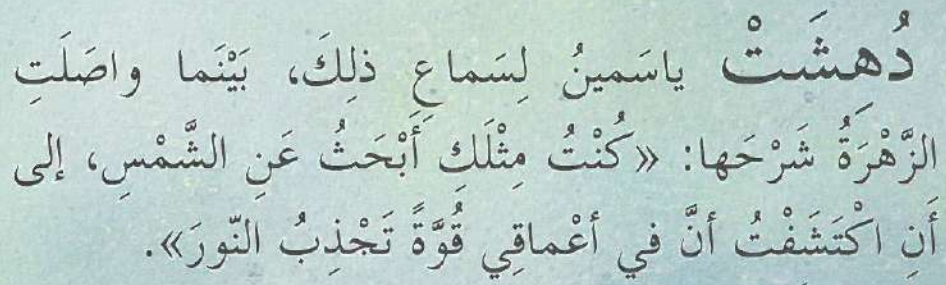 دُهِشَتْ ياسَمينُ لِسَماعِ ذلِكَ، بَيْنَما واصَلَتِ
الزَّهْرَةُ شَرْحَها: «كُنْتُ مِثْلَكِ أَبْحَثُ عَنِ الشَّمْسِ، إلى
أَنِ اكْتَشَفْتُ أنَّ في أعْماقِي قُوَّةً تَجْذِبُ النّورَ».